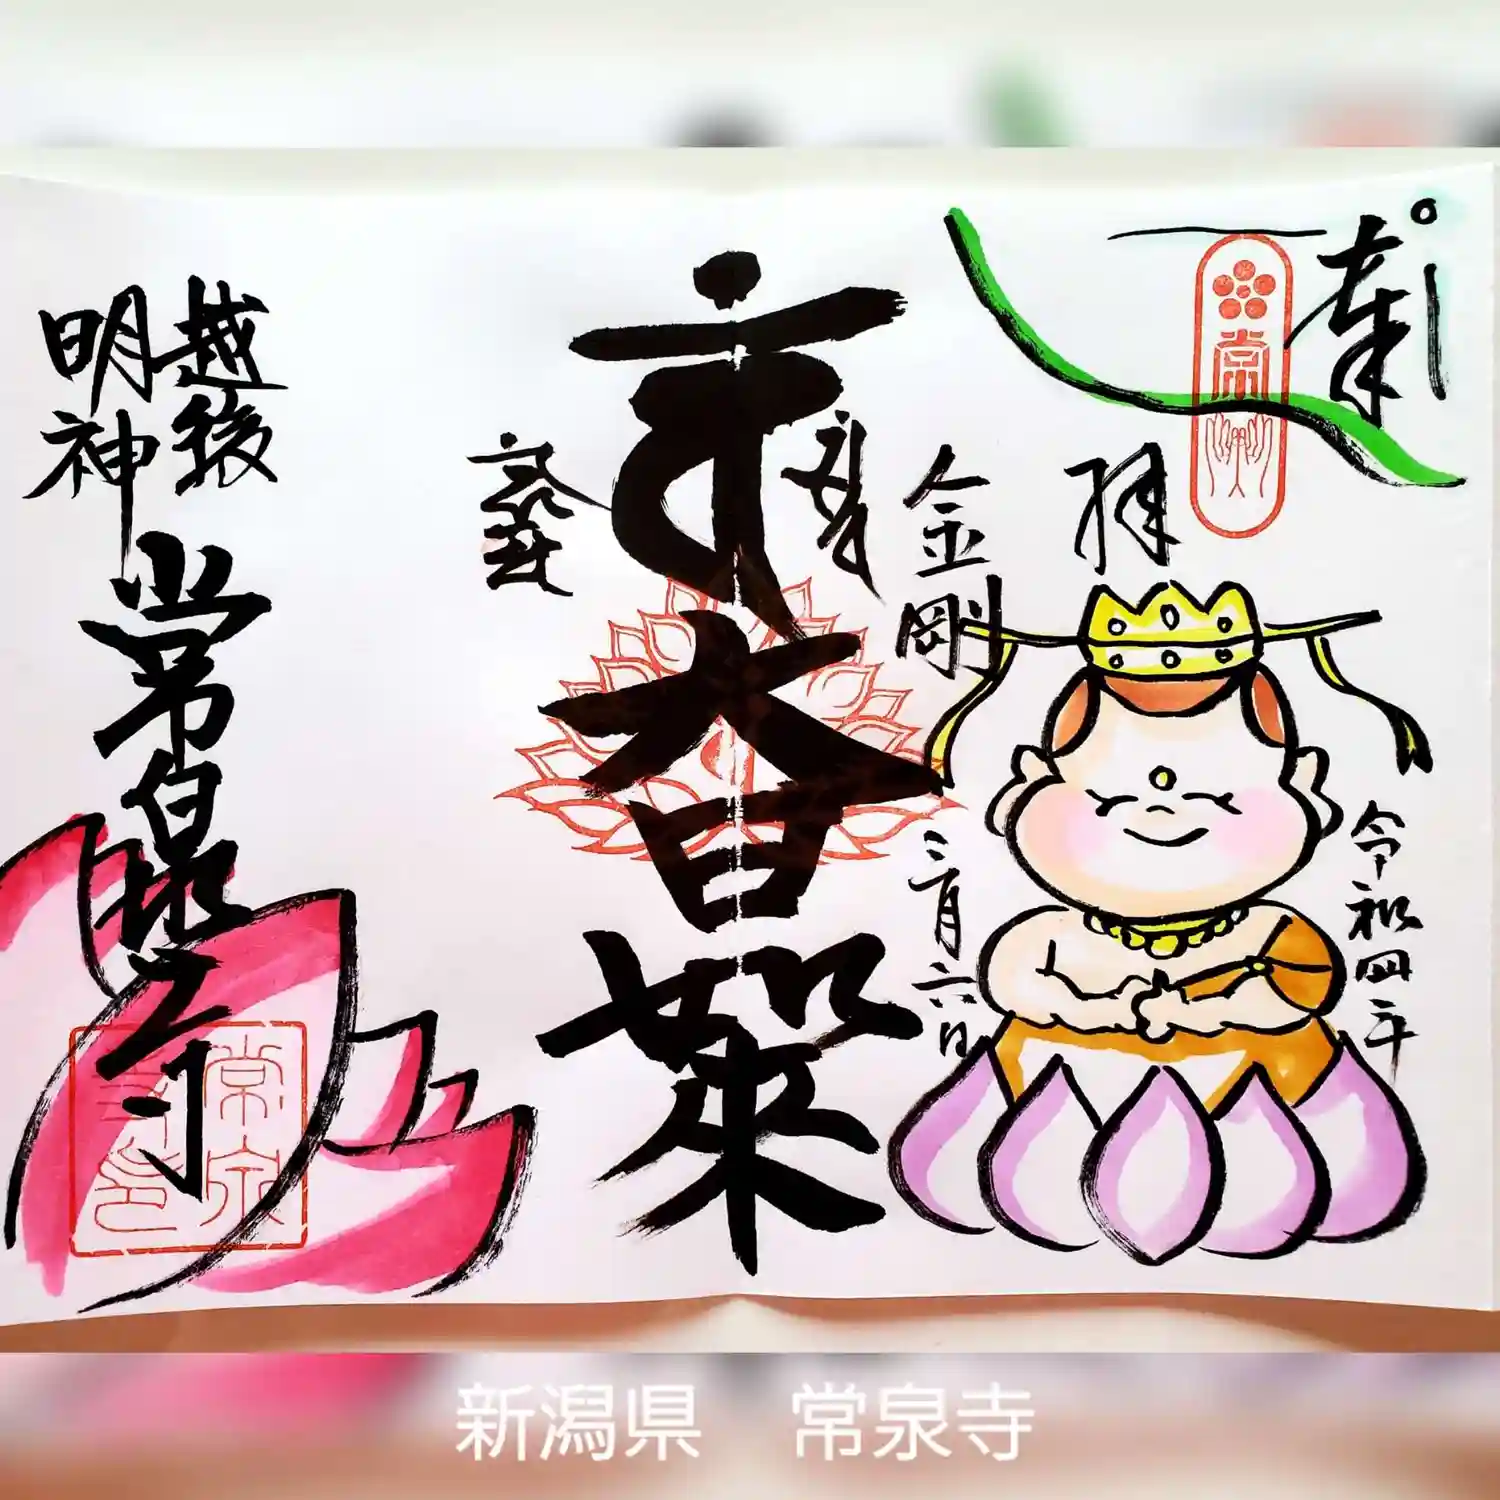 奉
拝
令和四年
三月六日
金剛
大日如来
越後
明神
常泉寺
新潟県　常泉寺